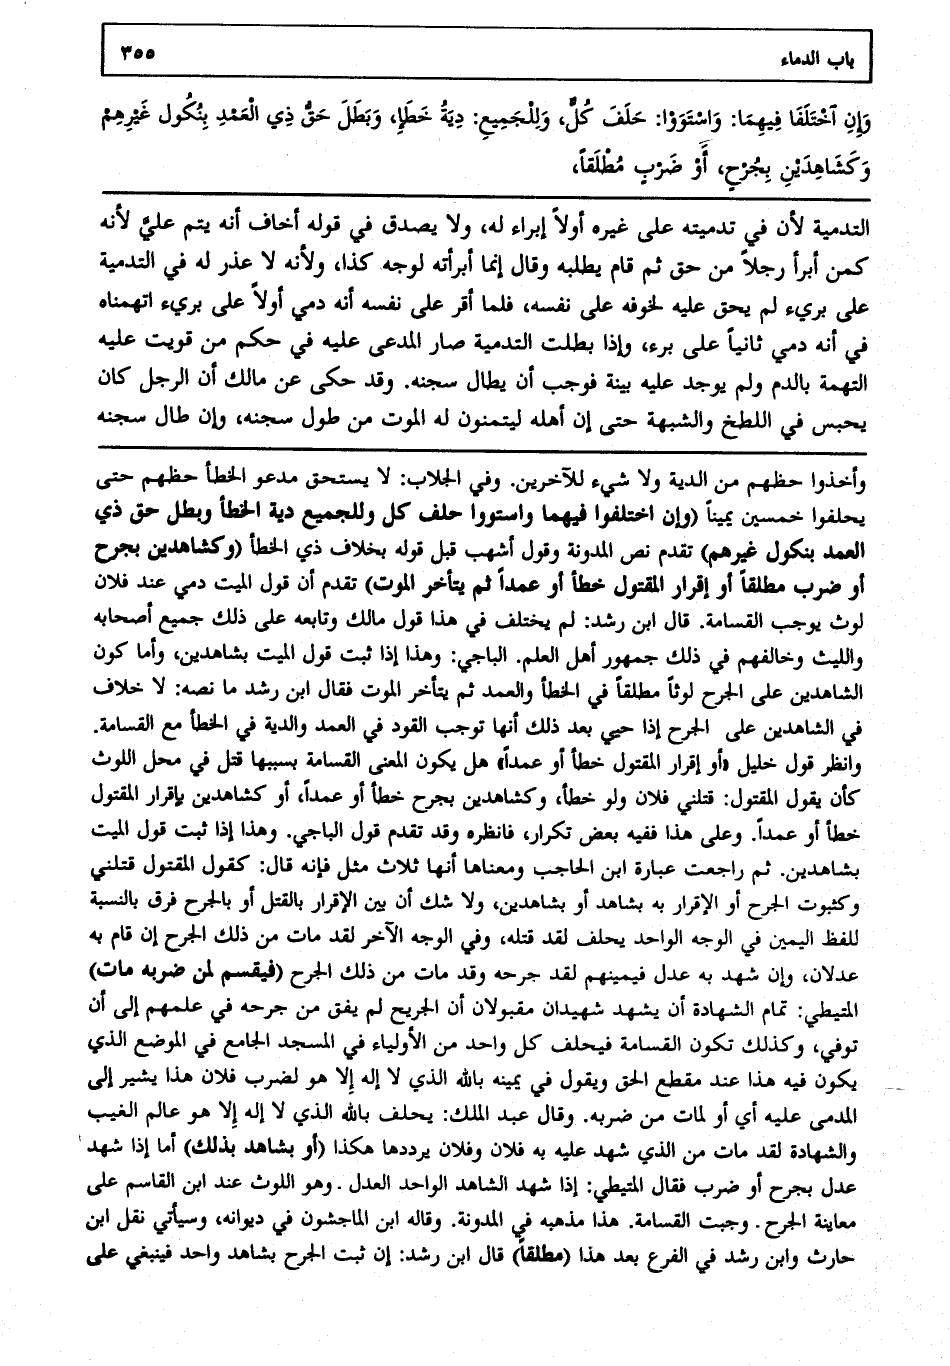 باب الدماء
٣٥٥
وَإِنِ ٱخْتَلَفَا فِيهِمَا: وَاسْتَوَوْا: حَلَفَ كُلٌّ، وَلِلْجَمِيعِ: دِيَةُ خَطَإٍ، وَبَطَلَ حَقُّ ذِي الْعَمْدِ بِنُكُولِ غَيْرِهِمْ
وَكَشَاهِدَيْنِ بِجُرْحٍ، أَوْ ضَرْبٍ مُطْلَقاً،
التدمية لأن في تدميته على غيره أولاً إبراء له، ولا يصدق في قوله أخاف أنه يتم عليَّ لأنه
كمن أبرأ رجلاً من حق ثم قام يطلبه وقال إنما أبرأته لوجه كذا، ولأنه لا عذر له في التدمية
على بريء لم يحق عليه لخوفه على نفسه، فلما أقر على نفسه أنه دمي أولاً على بريء اتهمناه
في أنه دمي ثانياً على برء، وإذا بطلت التدمية صار المدعى عليه في حكم من قويت عليه
التهمة بالدم ولم يوجد عليه بينة فوجب أن يطال سجنه. وقد حكى عن مالك أن الرجل كان
يحبس في اللطخ والشبهة حتى إن أهله ليتمنون له الموت من طول سجنه، وإن طال سجنه
وأخذوا حظهم من الدية ولا شيء للآخرين. وفي الجلاب: لا يستحق مدعو الخطأ حظهم حتى
يحلفوا خمسين يميناً (وإن اختلفوا فيهما واستووا حلف كل وللجميع دية الخطأ وبطل حق ذي
العمد بنكول غيرهم) تقدم نص المدونة وقول أشهب قبل قوله بخلاف ذي الخطأ (وكشاهدين بجرح
أو ضرب مطلقاً أو إقرار المقتول خطأ أو عمداً ثم يتأخر الموت) تقدم أن قول الميت دمي عند فلان
لوث يوجب القسامة. قال ابن رشد: لم يختلف في هذا قول مالك وتابعه على ذلك جميع أصحابه
والليث وخالفهم في ذلك جمهور أهل العلم. الباجي: وهذا إذا ثبت قول الميت بشاهدين، وأما كون
الشاهدين على الجرح لوثاً مطلقاً في الخطأ والعمد ثم يتأخر الموت فقال ابن رشد ما نصه: لا خلاف
في الشاهدين على الجرح إذا حيي بعد ذلك أنها توجب القود في العمد والدية في الخطأ مع القسامة.
وانظر قول خليل «أو إقرار المقتول خطأ أو عمداً» هل يكون المعنى القسامة بسببها قتل في محل اللوث
كأن يقول المقتول: قتلني فلان ولو خطأ، وكشاهدين بجرح خطأ أو عمداً، أو كشاهدين بإقرار المقتول
خطأ أو عمداً. وعلى هذا ففيه بعض تكرار، فانظره وقد تقدم قول الباجي. وهذا إذا ثبت قول الميت
بشاهدين. ثم راجعت عبارة ابن الحاجب ومعناها أنها ثلاث مثل فإنه قال: كقول المقتول قتلني
وكثبوت الجرح أو الإقرار به بشاهد أو بشاهدين، ولا شك أن بين الإقرار بالقتل أو بالجرح فرق بالنسبة
للفظ اليمين في الوجه الواحد يحلف لقد قتله، وفي الوجه الآخر لقد مات من ذلك الجرح إن قام به
عدلان، وإن شهد به عدل فيمينهم لقد جرحه وقد مات من ذلك الجرح (فيقسم لمن ضربه مات)
المتيطي: تمام الشهادة أن يشهد شهيدان مقبولان أن الجريح لم يفق من جرحه في علمهم إلى أن
توفي، وكذلك تكون القسامة فيحلف كل واحد من الأولياء في المسجد الجامع في الموضع الذي
يكون فيه هذا عند مقطع الحق ويقول في يمينه بالله الذي لا إله إلا هو لضرب فلان هذا يشير إلى
المدمى عليه أي أو لمات من ضربه. وقال عبد الملك: يحلف بالله الذي لا إله إلا هو عالم الغيب
والشهادة لقد مات من الذي شهد عليه به فلان وفلان يرددها هكذا (أو بشاهد بذلك) أما إذا شهد
عدل بجرح أو ضرب فقال المتيطي: إذا شهد الشاهد الواحد العدل ـ وهو اللوث عند ابن القاسم على
معاينة الجرح ـ وجبت القسامة. هذا مذهبه في المدونة. وقاله ابن الماجشون في ديوانه، وسيأتي نقل ابن
حارث وابن رشد في الفرع بعد هذا (مطلقاً) قال ابن رشد: إن ثبت الجرح بشاهد واحد فينبغي على